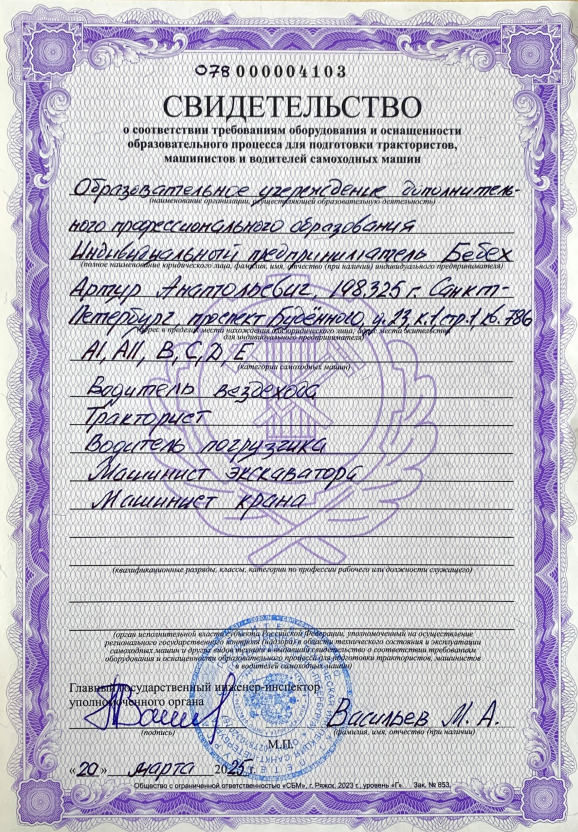 078 000004103
СВИДЕТЕЛЬСТВО
о соответствии требованиям оборудования и оснащенности
образовательного процесса для подготовки трактористов,
машинистов и водителей самоходных машин
Образовательное учереждение дополнитель-
(наименование организации, осуществляющей образовательную деятельность)
ного профессионального образования
Индивидуальный предприниматель Бебех
(полное наименование юридического лица, фамилия, имя, отчество (при наличии) индивидуального предпринимателя)
Артур Анатольевич, 198325 г. Санкт-
Петербург, проспект Будённого, д.23 к.1, стр.1, кв. 786
(адрес в пределах места нахождения для юридического лица; адрес места жительства
для индивидуального предпринимателя)
AI, AII, B, C, D, E
(категории самоходных машин)
Водитель вездехода
Тракторист
Водитель погрузчика
Машинист экскаватора
Машинист крана
(квалификационные разряды, классы, категории по профессии рабочего или должности служащего)
(орган исполнительной власти субъекта Российской Федерации, уполномоченный на осуществление
регионального государственного контроля (надзора) в области технического состояния и эксплуатации
самоходных машин и других видов техники и выдавший свидетельство о соответствии требованиям
оборудования и оснащенности образовательного процесса для подготовки трактористов, машинистов
и водителей самоходных машин)
Главный государственный инженер-инспектор
уполномоченного органа
Васильев М. А.
(подпись) (фамилия, имя, отчество (при наличии)
М.П.
«20» марта 2025 г.
Общество с ограниченной ответственностью «СБМ», г. Ряжск, 2023 г., уровень «Г». Зак. № 853.